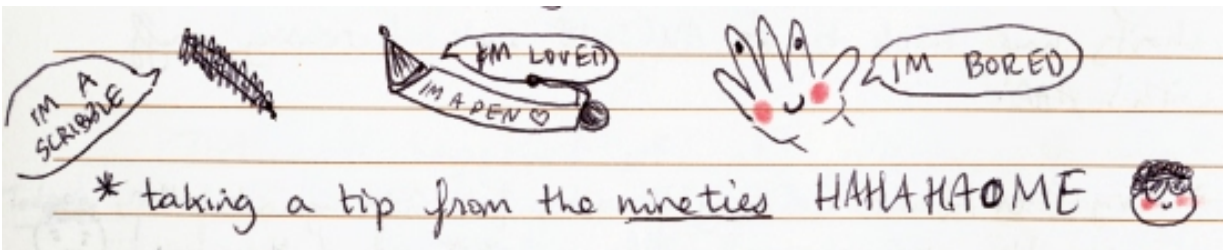 I'M A
SCRIBBLE
I'M LOVED
I'M A PEN ♡
I'M BORED
* taking a tip from the nineties HAHAHAOME